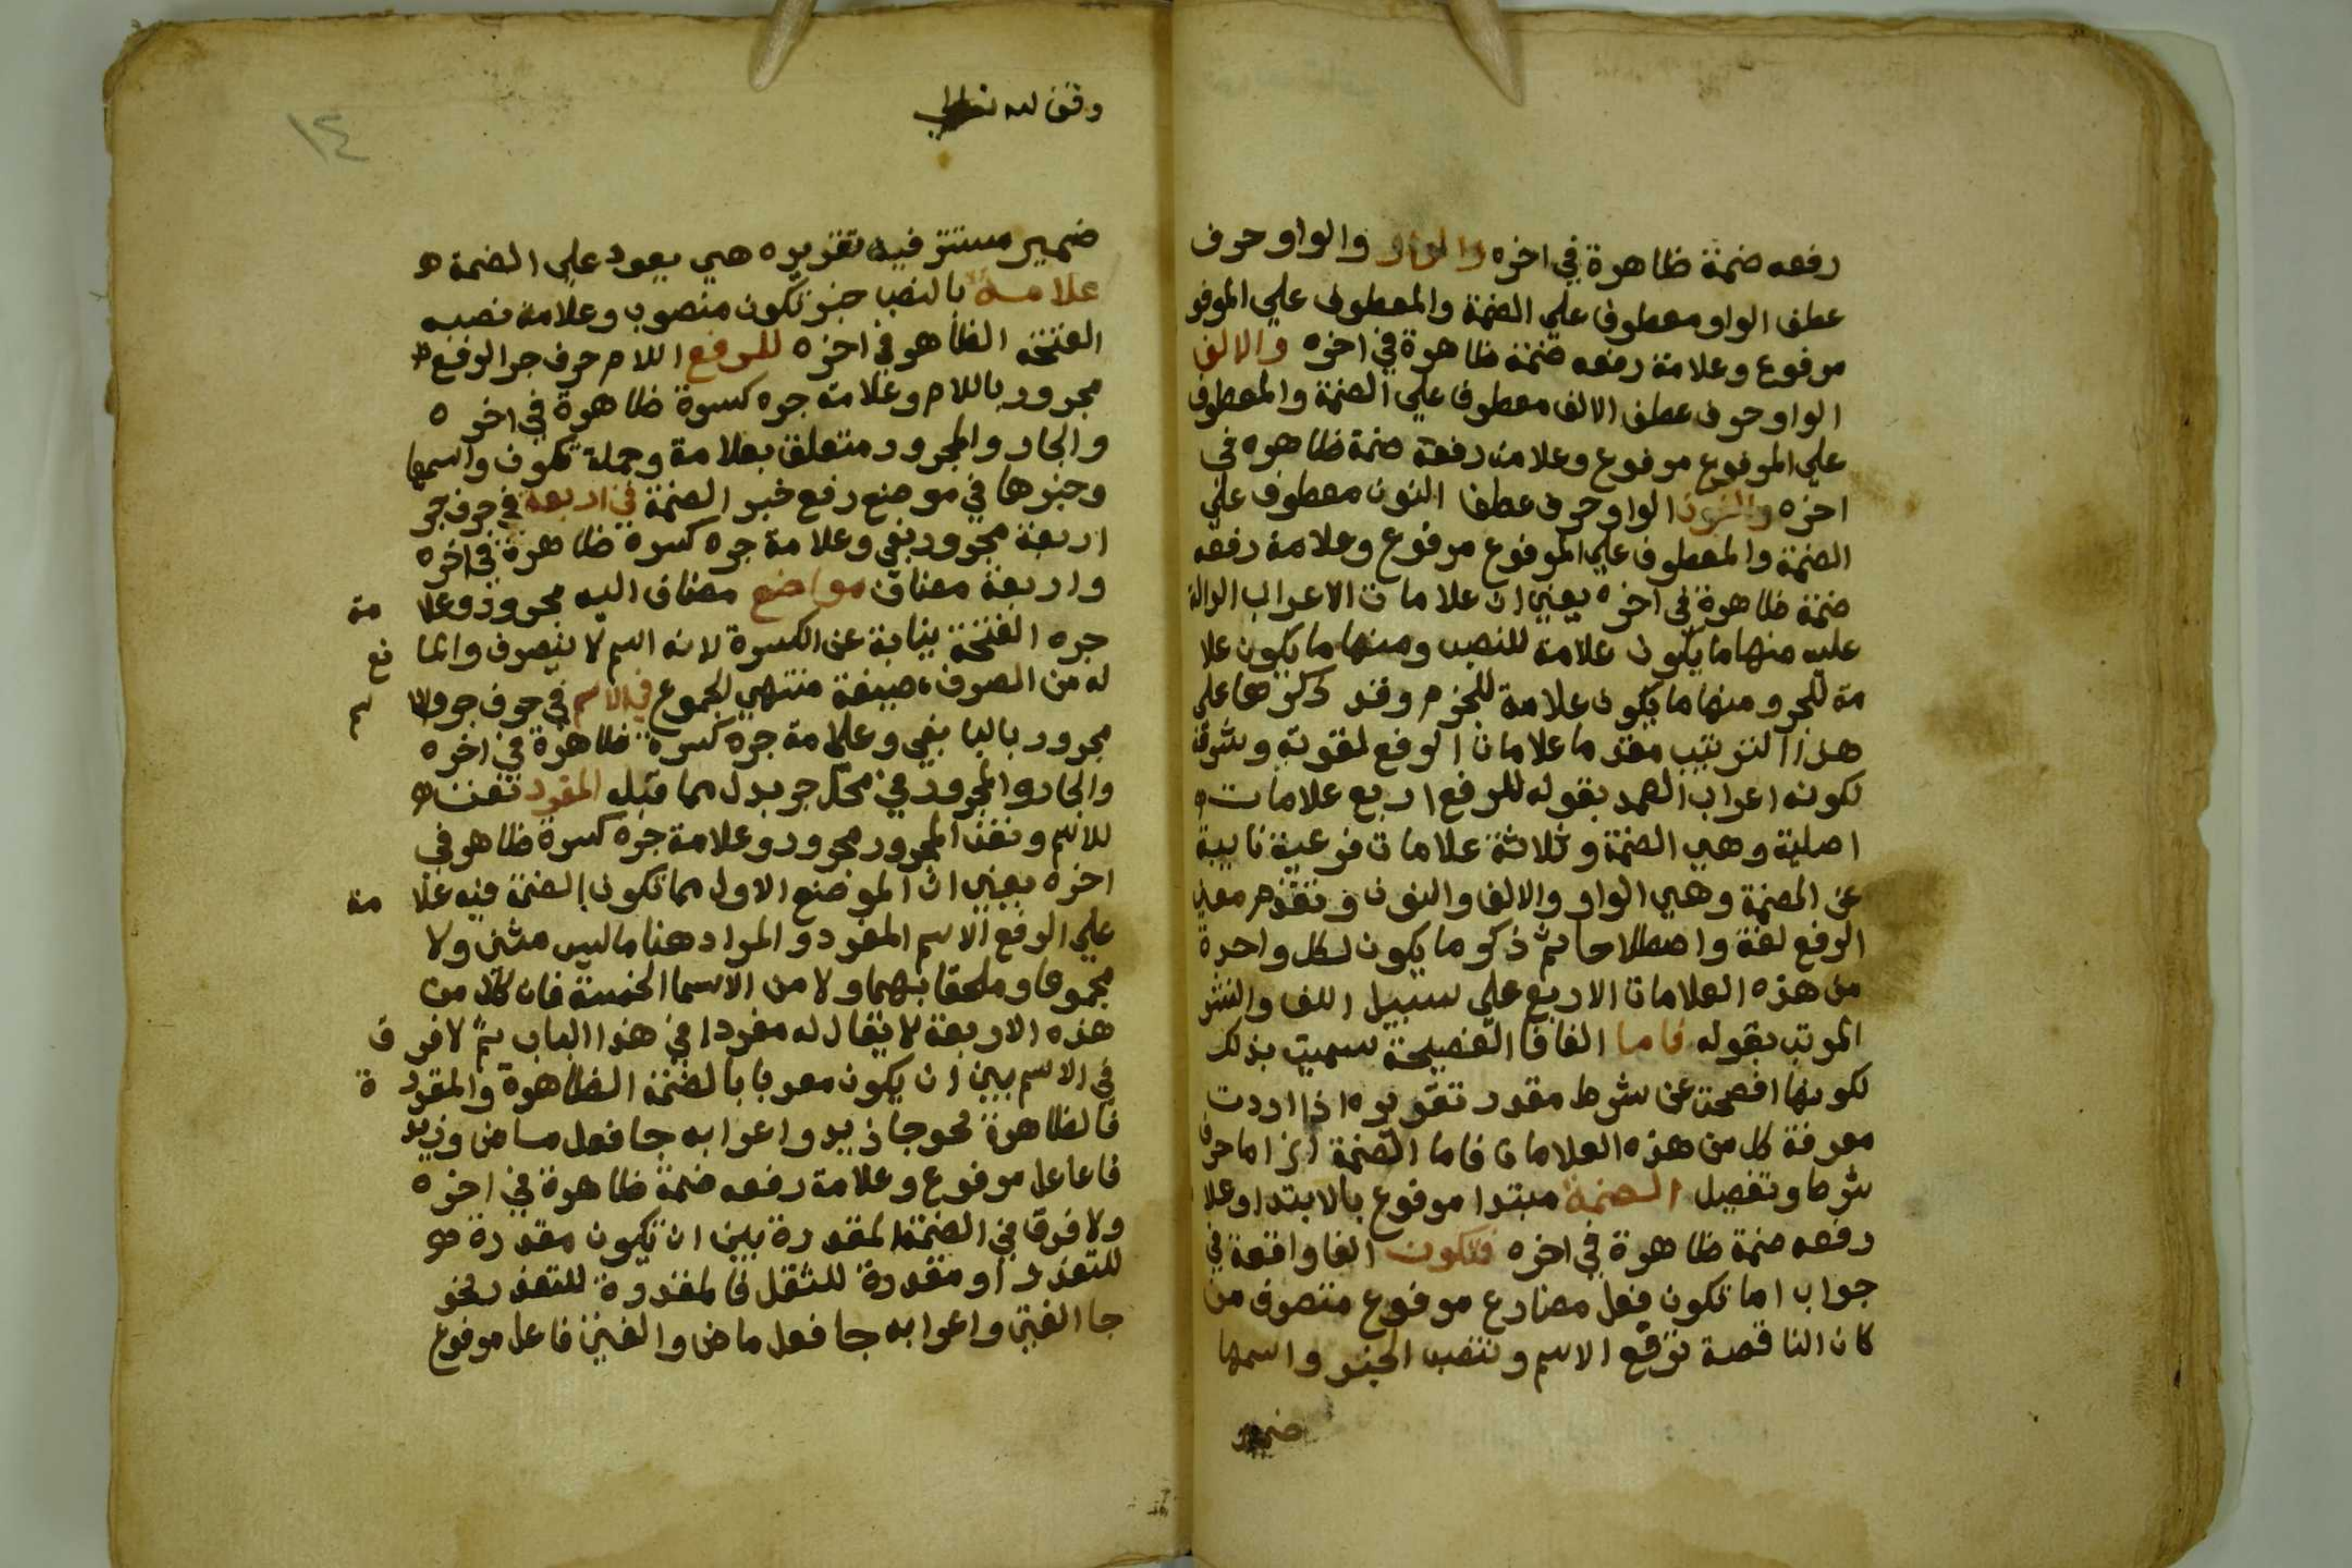 رفعه ضمة ظاهرة في اخره والواو والواو حرف
عطف الواو معطوف علي الضمة والمعطوف علي المرفو
مرفوع وعلامة رفعه ضمة ظاهرة في اخره والالف
الواو حرف عطف الالف معطوف علي الضمة والمعطوف
علي المرفوع مرفوع وعلامة رفعه ضمة ظاهره في
اخره والنون الواو حرف عطف النون معطوف علي
الضمة والمعطوف علي المرفوع مرفوع وعلامة رفعه
ضمة ظاهرة في اخره يعني ان علامات الاعراب الدالة
عليه منها ما يكون علامة للنصب ومنها ما يكون علا
مة للجر ومنها ما يكون علامة للجزم وقد ذكرها علي
هذا الترتيب مقدما علامات الرفع لقوته وشرفه
لكونه اعراب العمد بقوله للرفع اربع علامات
اصلية وهي الضمة وثلاثة علامات فرعية نايبة
عن الضمة وهي الواو والالف والنون وتقدم معني
الرفع لغة واصطلاحا ثم ذكر ما يكون لكل واحدة
من هذه العلامات الاربع علي سبيل اللف والنشر
المرتب بقوله فاما الفا فا الفصيحة سميت بذلك
لكونها افصحت عن شرط مقدر تقديره اذا اردت
معرفة كل من هذه العلامات فاما الضمة الخ اما حرف
شرط وتفصيل الضمة مبتدا مرفوع بالابتدا وعلا
رفعه ضمة ظاهرة في اخره فتكون الفا واقعة في
جواب اما تكون فعل مضارع مرفوع متصرف من
كان الناقصة ترفع الاسم وتنصب الخبر واسمها
ضمير
وقف لله تعالي
١٤
ضمير مستتر فيه تقديره هي يعود علي الضمة
علامة بالنصب خبر تكون منصوب وعلامة نصبه
الفتحه الظاهر في اخره للرفع اللام حرف جر الرفع
مجرور باللام وعلامة جره كسرة ظاهرة في اخره
والجار والمجرور متعلق بعلامة وجملة تكون واسمها
وخبرها في موضع رفع خبر الضمة في اربعة في حرف جر
اربعة مجرور بفي وعلامة جره كسرة ظاهرة في اخره
واربعة مضاف مواضع مضاف اليه مجرور وعلا مة
جره الفتحة نيابة عن الكسرة لانه اسم لا ينصرف والما نع
له من الصرف صيغة منتهي الجموع في الاسم في حرف جر والا سم
مجرور باليا بفي وعلامة جره كسرة ظاهرة في اخره
والجار والمجرور في محل جر بدل مما قبله المفرد نعت
للاسم ونعت المجرور مجرور وعلامة جره كسرة ظاهر في
اخره يعني ان الموضع الاول مما تكون الضمة فيه علا مة
علي الرفع الاسم المفرد والمراد هنا ما ليس مثني ولا
مجموعا وملحقا بهما ولا من الاسما الخمسة فان كلا من
هذه الاربعة لا يقال له مفردا في هذا الباب ثم لا فر ق
في الاسم بين ان يكون معربا بالضمة الظاهرة والمقدر ة
فالظاهرة نحو جا زيد واعرابه جا فعل ماض وزيد
فاعاعل مرفوع وعلامة رفعه ضمة ظاهرة في اخره
ولا فرق في الضمة المقدرة بين ان تكون مقدرة
للتعذر او مقدرة للثقل فالمقدرة للتعذر نحو
جا الفتي واعرابه جا فعل ماض والفتي فاعل مرفوع